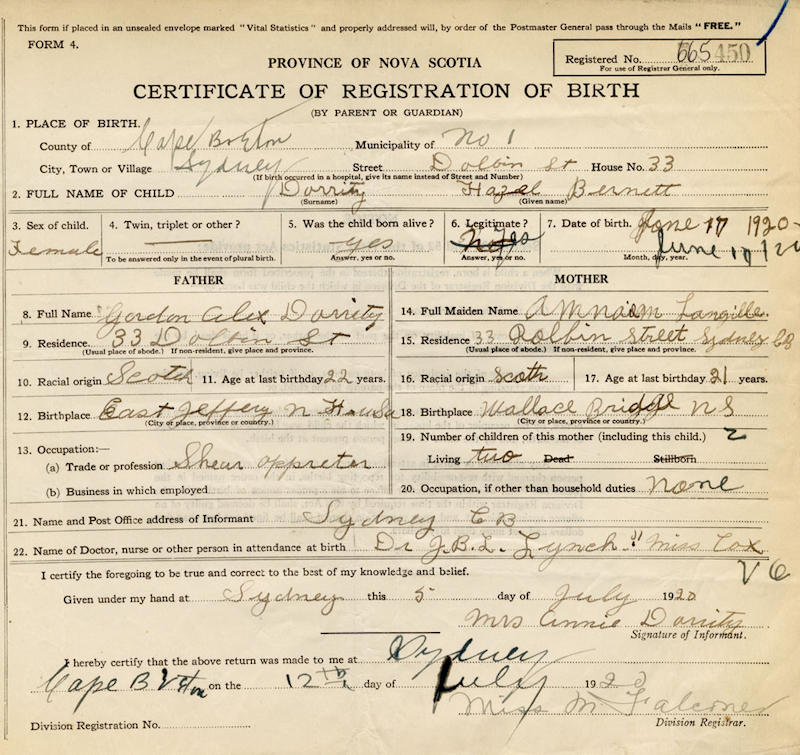 This form if placed in an unsealed envelope marked "Vital Statistics" and properly addressed will, by order of the Postmaster General pass through the Mails "FREE."
FORM 4.
Registered No. 665 450
For use of Registrar General only.
PROVINCE OF NOVA SCOTIA
CERTIFICATE OF REGISTRATION OF BIRTH
(BY PARENT OR GUARDIAN)
1. PLACE OF BIRTH.
County of Cape Breton Municipality of No 1
City, Town or Village Sydney Street Dolbin St House No. 33
(If birth occurred in a hospital, give its name instead of Street and Number)
2. FULL NAME OF CHILD Dorrity Hazel Bernett
(Surname) (Given name)
3. Sex of child. 4. Twin, triplet or other? 5. Was the child born alive? 6. Legitimate? 7. Date of birth. June 17 1920
Female — yes yes June 17/20
To be answered only in the event of plural birth. Answer, yes or no. Answer, yes or no. Month, day, year.
FATHER
8. Full Name Gordon Alex Dorrity
9. Residence 33 Dolbin St
(Usual place of abode.) If non-resident, give place and province.
10. Racial origin Scotch 11. Age at last birthday 22 years.
12. Birthplace East Jeffery N
(City or place, province or country.)
13. Occupation:—
(a) Trade or profession Shear oppreter
(b) Business in which employed
MOTHER
14. Full Maiden Name Langille
15. Residence 33 Dolbin Street Sydney CB
(Usual place of abode.) If non-resident, give place and province.
16. Racial origin Scoth 17. Age at last birthday 21 years.
18. Birthplace Wallace Bridge NS
(City or place, province or country.)
19. Number of children of this mother (including this child.) 2
Living two Dead Stillborn
20. Occupation, if other than household duties None
21. Name and Post Office address of Informant Sydney CB
22. Name of Doctor, nurse or other person in attendance at birth Dr J.B.L. Lynch " Miss Cox
I certify the foregoing to be true and correct to the best of my knowledge and belief.
Given under my hand at Sydney this 5 day of July 1920
Mrs Annie Dorrity
Signature of Informant.
I hereby certify that the above return was made to me at Sydney
Cape Breton on the 12th day of July 1920
Miss M Falconer
Division Registration No. Division Registrar.